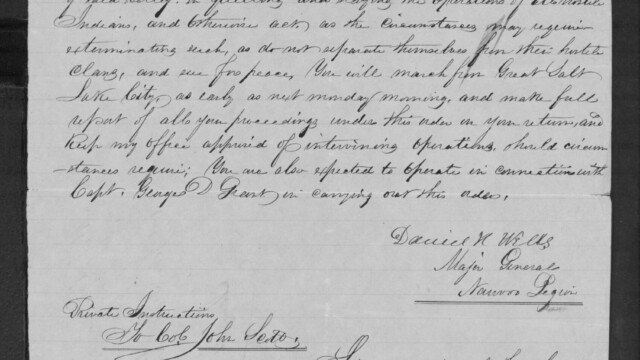 of said Valley. in quelling and staying the operations of all hostile
Indians, and otherwise act, as the circumstances may require
exterminating such, as do not separate themselves from their hostile
clans, and sue for peace. You will march from Great Salt
Lake City, as early as next monday morning, and make full
report of all your proceedings under this order on your return, and
keep my office apprised of intervining operations, should circum
-stances require; You are also expected to operate in connection with
Capt. George D Grant in carrying out this order.
Daniel H Wells
Major General
Nauvoo Legion
Private Instructions,
To Col. John Scott,